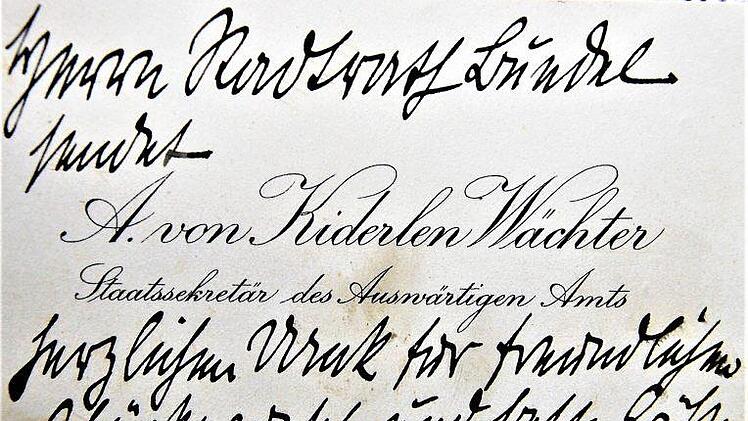 Herrn Stadtrath Bundel
sendet
A. von Kiderlen Wächter
Staatssekretär des Auswärtigen Amts
herzlichen Dank für freundlichen